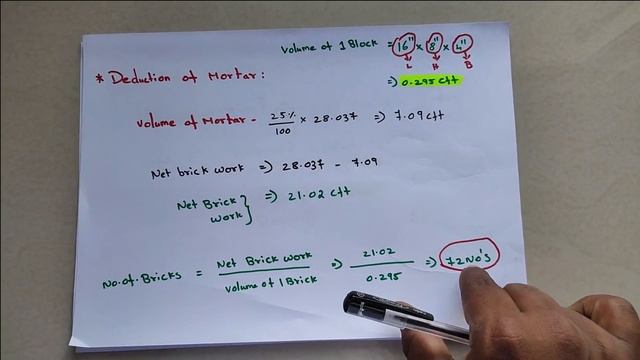 Volume of 1 Block = 16" x 8" x 4"
L H B
* Deduction of Mortar:
=> 0.295 cft
Volume of Mortar - 25%/100 x 28.037 => 7.09 cft
Net brick work => 28.037 - 7.09
Net Brick work } => 21.02 cft
No.of.Bricks = Net Brick work / Volume of 1 Brick => 21.02 / 0.295 => 72 No's